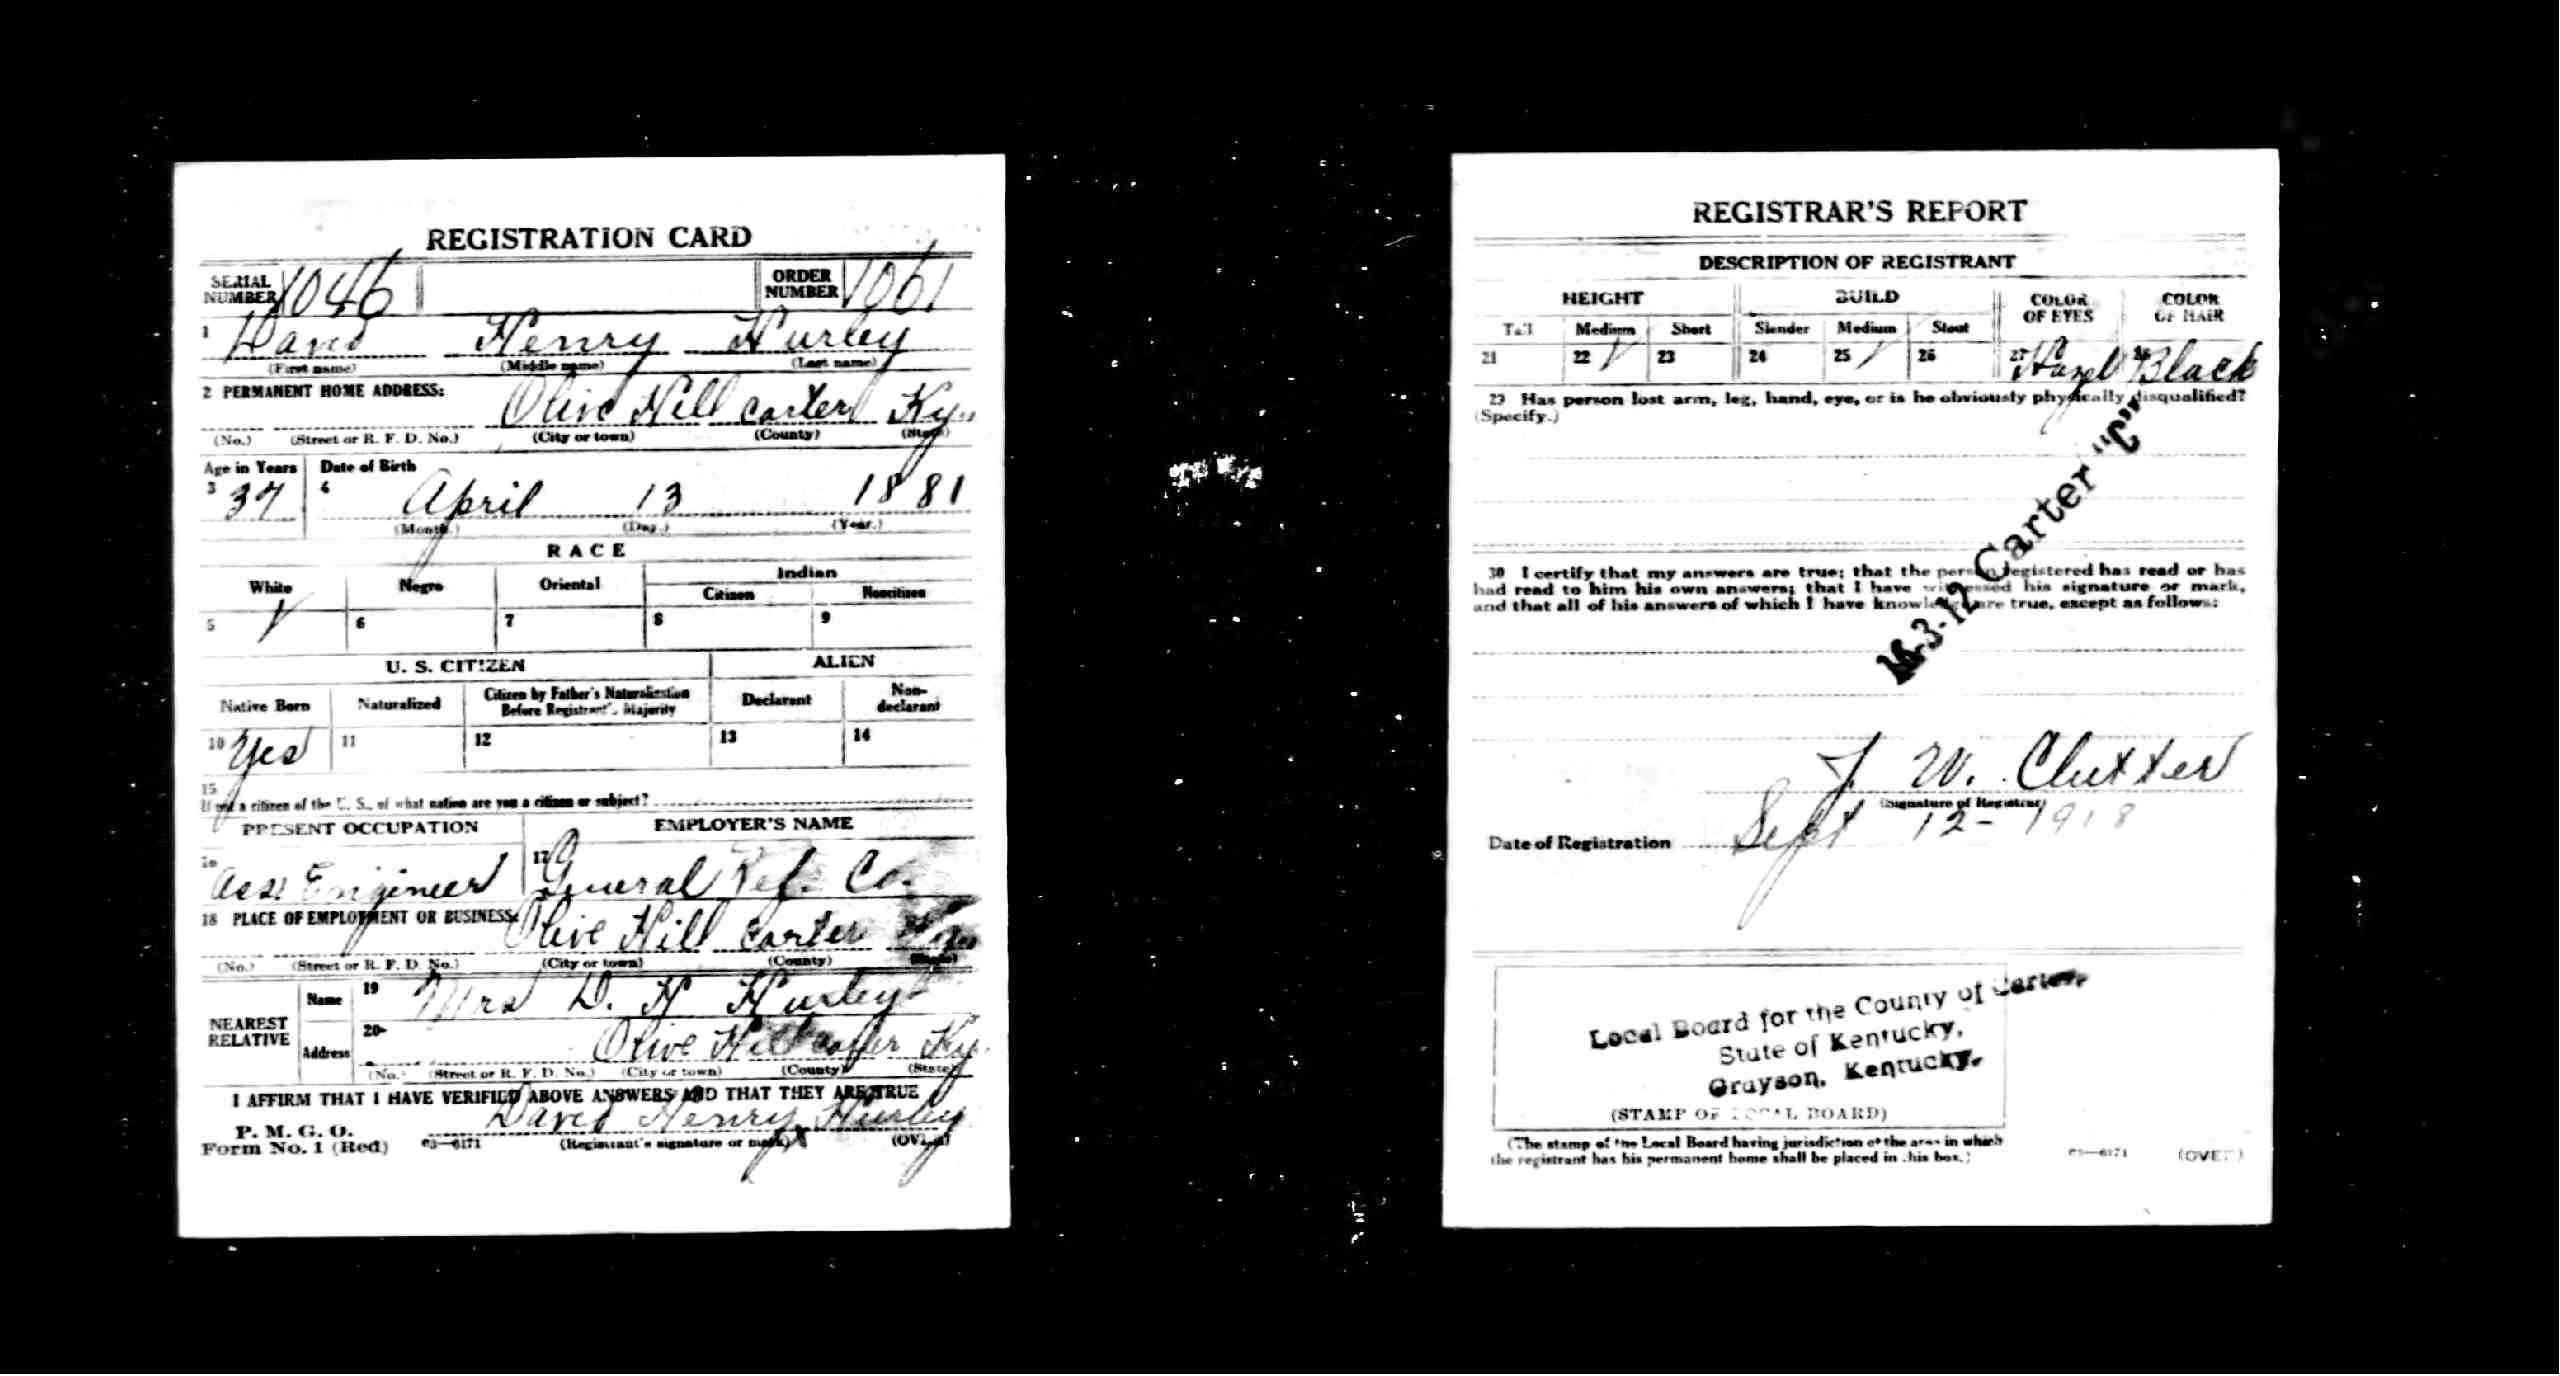 REGISTRATION CARD
SERIAL NUMBER 1046 ORDER NUMBER 1061
1 David Henry Hurley
(First name) (Middle name) (Last name)
2 PERMANENT HOME ADDRESS:
Olive Hill Carter Ky.
(No.) (Street or R. F. D. No.) (City or town) (County) (State)
Age in Years Date of Birth
3 37 4 April 13 1881
(Month.) (Day.) (Year.)
RACE
White Negro Oriental Indian
Citizen Noncitizen
5 ✓ 6 7 8 9
U. S. CITIZEN ALIEN
Native Born Naturalized Citizen by Father's Naturalization Before Registrant's Majority Declarant Non-declarant
10 Yes 11 12 13 14
15
If not a citizen of the U. S., of what nation are you a citizen or subject?
PRESENT OCCUPATION EMPLOYER'S NAME
16 Asst Engineer 17 General Ref. Co.
18 PLACE OF EMPLOYMENT OR BUSINESS:
Olive Hill Carter Ky.
(No.) (Street or R. F. D. No.) (City or town) (County) (State)
NEAREST RELATIVE
Name 19 Mrs D. H Hurley
Address 20 Olive Hill Carter Ky.
(No.) (Street or R. F. D. No.) (City or town) (County) (State)
I AFFIRM THAT I HAVE VERIFIED ABOVE ANSWERS AND THAT THEY ARE TRUE
David Henry Hurley
P. M. G. O.
Form No. 1 (Red) 03—6171 (Registrant's signature or mark) (OVER)
REGISTRAR'S REPORT
DESCRIPTION OF REGISTRANT
HEIGHT BUILD COLOR OF EYES COLOR OF HAIR
Tall Medium Short Slender Medium Stout
21 22 ✓ 23 24 25 ✓ 26 27 Hazel 28 Black
29 Has person lost arm, leg, hand, eye, or is he obviously physically disqualified?
(Specify.)
16-3-12 Carter "C"
30 I certify that my answers are true; that the person registered has read or has
had read to him his own answers; that I have witnessed his signature or mark,
and that all of his answers of which I have knowledge are true, except as follows:
J. W. Clutter
(Signature of Registrar)
Date of Registration Sept 12- 1918
Local Board for the County of Carter,
State of Kentucky,
Grayson, Kentucky.
(STAMP OF LOCAL BOARD)
(The stamp of the Local Board having jurisdiction of the area in which
the registrant has his permanent home shall be placed in this box.)
03—6171 (OVER)